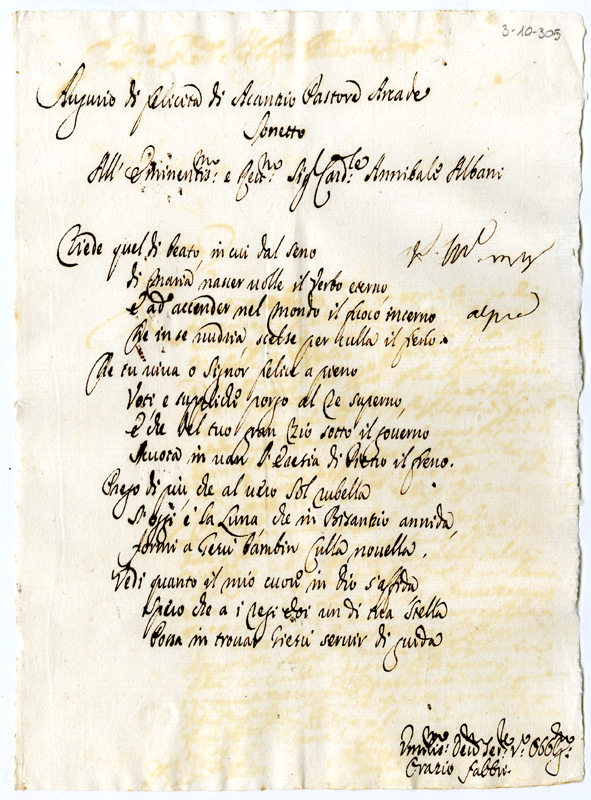 3-10-305
Augurio di felicità di Acanzio Pastore Arcade
Sonetto
All' Eminentis:mo e Rev:mo Sig:r Card:le Annibale Albani
Riede quel dì beato, in cui dal seno
di Maria nascer volle il Verbo eterno,
E ad accender nel mondo il fuoco interno
Che in se nudria, scelse per culla il fieno.
Che tu viva o Signor felice a pieno
Voti e suppliche porgo al Re superno,
E che del tuo gran Zio sotto il governo
Scuota in van l'Eresia di Pietro il freno.
Prego di più che al vero Sol rubella
S'oggi è la Luna che in Bizanzio annida,
formi a Gesù bambin culla novella.
Vedi quanto il mio cuore in Dio s'affida
Spero che a i Regi Eoi un dì tua Stella
Possa in trovar Giesù servir di guida
Orazio Fabbri